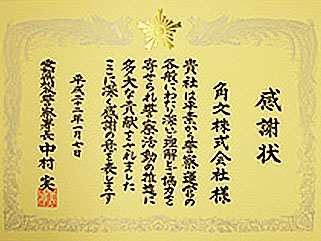 感謝状
角文株式会社様
貴社は平素から警察運営の
各般にわたり深い理解と協力を
寄せられ警察活動の推進に
多大な貢献をされました
ここに深く感謝の意を表します
平成二十二年一月七日
愛知県安城警察署長 中村 実